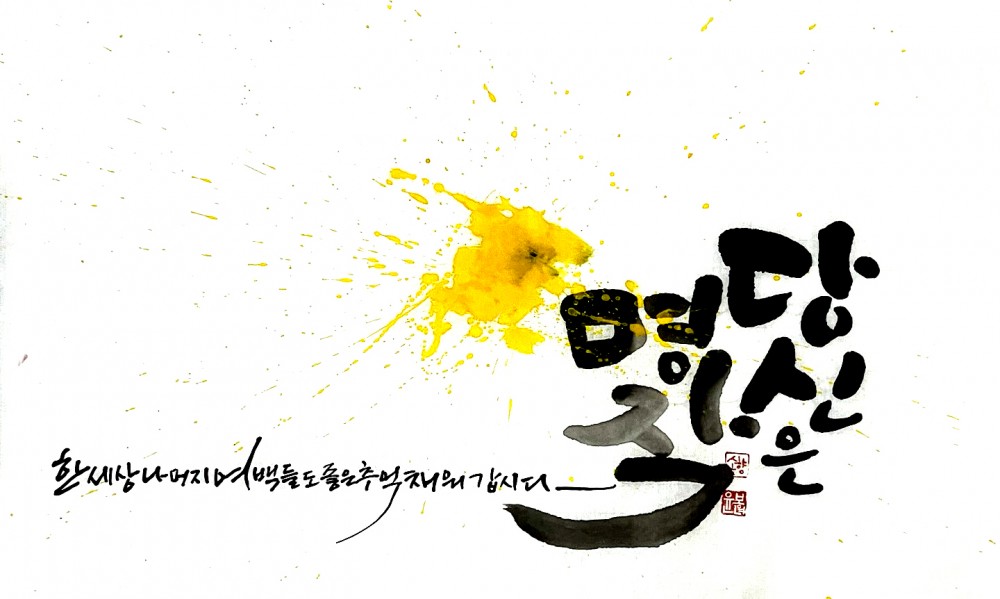 당신은
명작
한세상 나머지 여백들도 좋은 추억 채워 갑시다